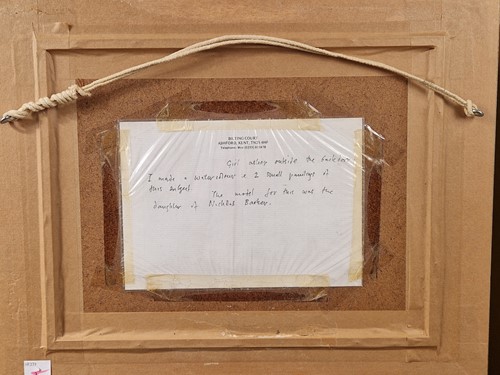 BILTING COURT
ASHFORD, KENT, TN25 4HF
Girl asleep outside the
I made a watercolour & 2 small paintings of
this subject. The model for this was the
daughter of Nicholas Barker.